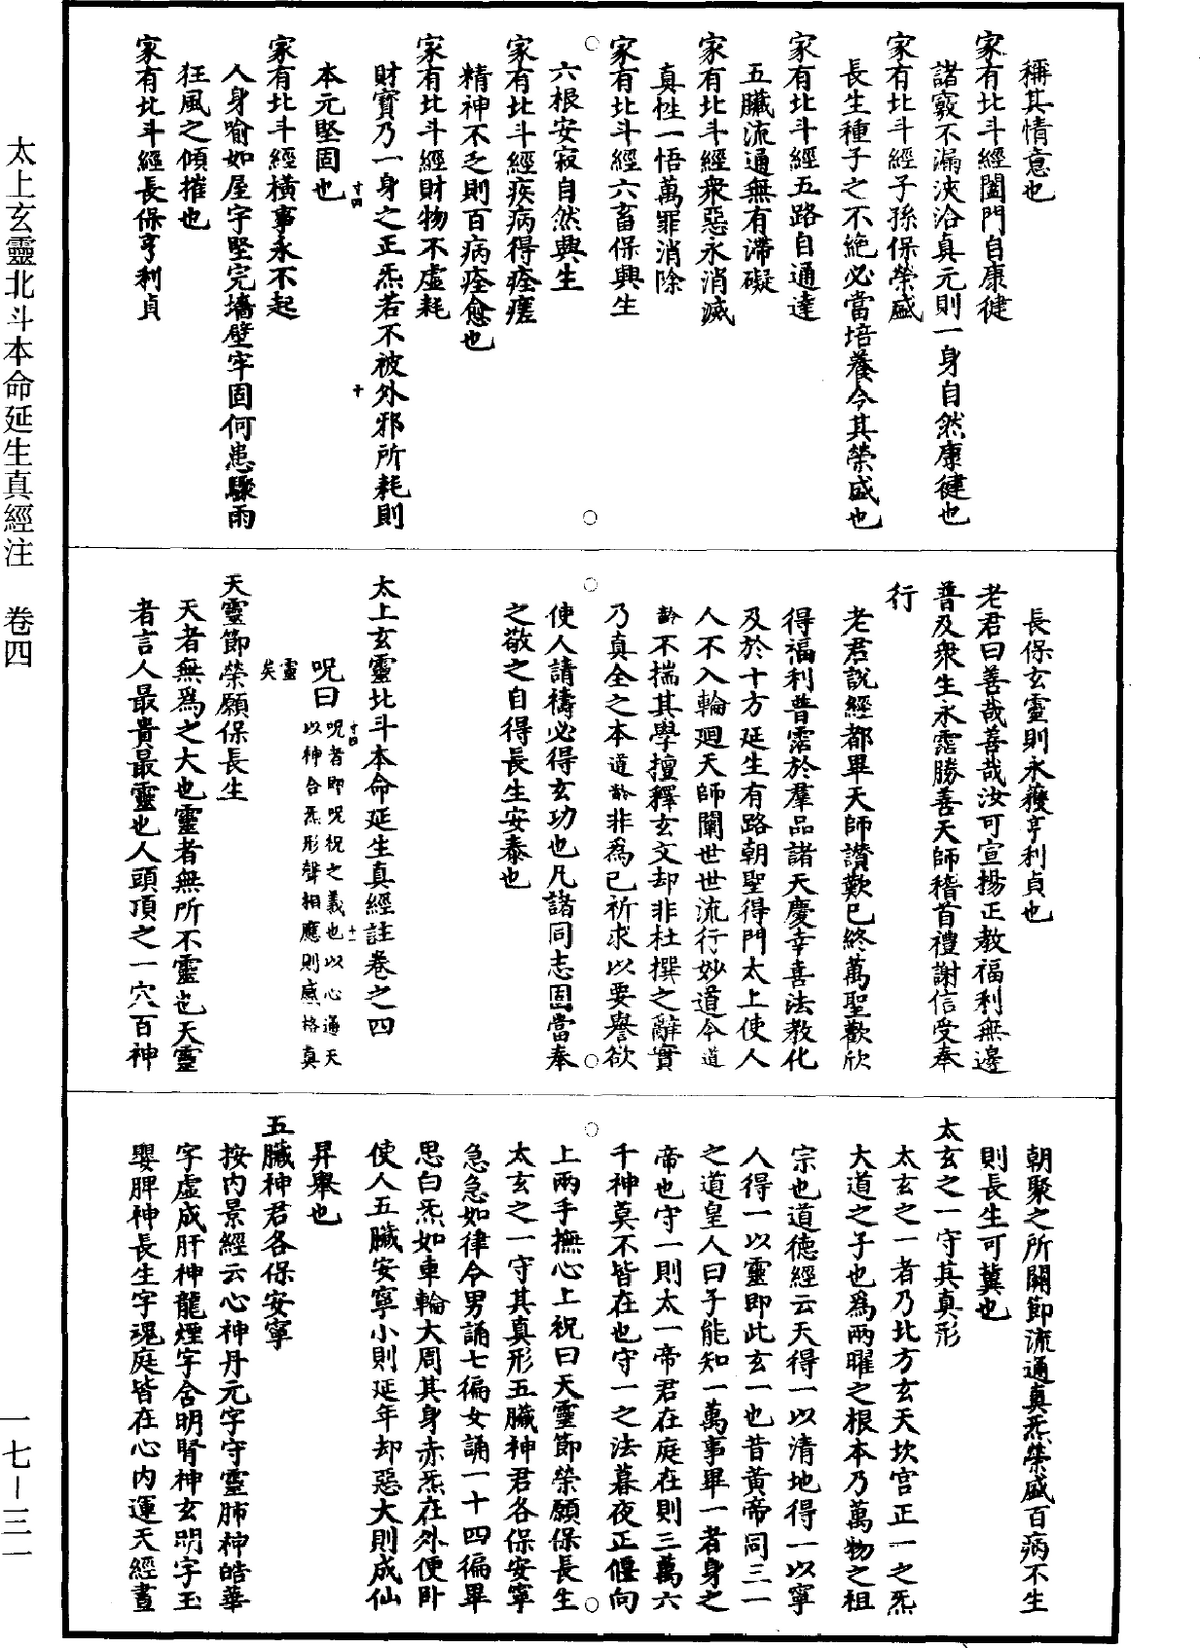 太上玄靈北斗本命延生真經注　卷四
一七－三一
稱其情意也
家有北斗經闔門自康健
諸竅不漏浹洽真元則一身自然康健也
家有北斗經子孫保榮盛
長生種子之不絕必當培養令其榮盛也
家有北斗經五路自通達
五臟流通無有滯礙
家有北斗經衆惡永消滅
真性一悟萬罪消除
家有北斗經六畜保興生
六根安寂自然興生
家有北斗經疾病得痊瘥
精神不乏則百病痊愈也
家有北斗經財物不虛耗
財寶乃一身之正炁若不被外邪所耗則
本元堅固也
家有北斗經橫事永不起
人身喻如屋宇堅完墻壁牢固何患驟雨
狂風之傾摧也
家有北斗經長保亨利貞
長保玄靈則永獲亨利貞也
老君曰善哉善哉汝可宣揚正教福利無邊
普及衆生永霑勝善天師稽首禮謝信受奉
行
老君說經都畢天師讚歎已終萬聖歡欣
得福利普霑於羣品諸天慶幸喜法教化
及於十方延生有路朝聖得門太上使人
人不入輪迴天師闡世世流行妙道今道
齡不揣其學擅釋玄文却非杜撰之辭實
乃真全之本道齡非為己祈求以要譽欲
使人請禱必得玄功也凡諸同志固當奉
之敬之自得長生安泰也
太上玄靈北斗本命延生真經註卷之四
呪曰
呪者即呪祝之義也以心通天
以神合炁形聲相應則感格真
靈
矣
天靈節榮願保長生
天者無為之大也靈者無所不靈也天靈
者言人最貴最靈也人頭頂之一穴百神
朝聚之所關節流通真炁榮盛百病不生
則長生可冀也
太玄之一守其真形
太玄之一者乃北方玄天坎宮正一之炁
大道之子也為兩曜之根本乃萬物之祖
宗也道德經云天得一以清地得一以寧
人得一以靈即此玄一也昔黃帝同三一
之道皇人曰子能知一萬事畢一者身之
帝也守一則太一帝君在庭在則三萬六
千神莫不皆在也守一之法暮夜正偃向
上兩手撫心上祝曰天靈節榮願保長生
太玄之一守其真形五臟神君各保安寧
急急如律令男誦七徧女誦一十四徧畢
思白炁如車輪大周其身赤炁在外便卧
使人五臟安寧小則延年却惡大則成仙
昇舉也
五臟神君各保安寧
按內景經云心神丹元字守靈肺神皓華
字虛成肝神龍煙字含明腎神玄明字玉
嬰脾神長生字魂庭皆在心內運天經晝